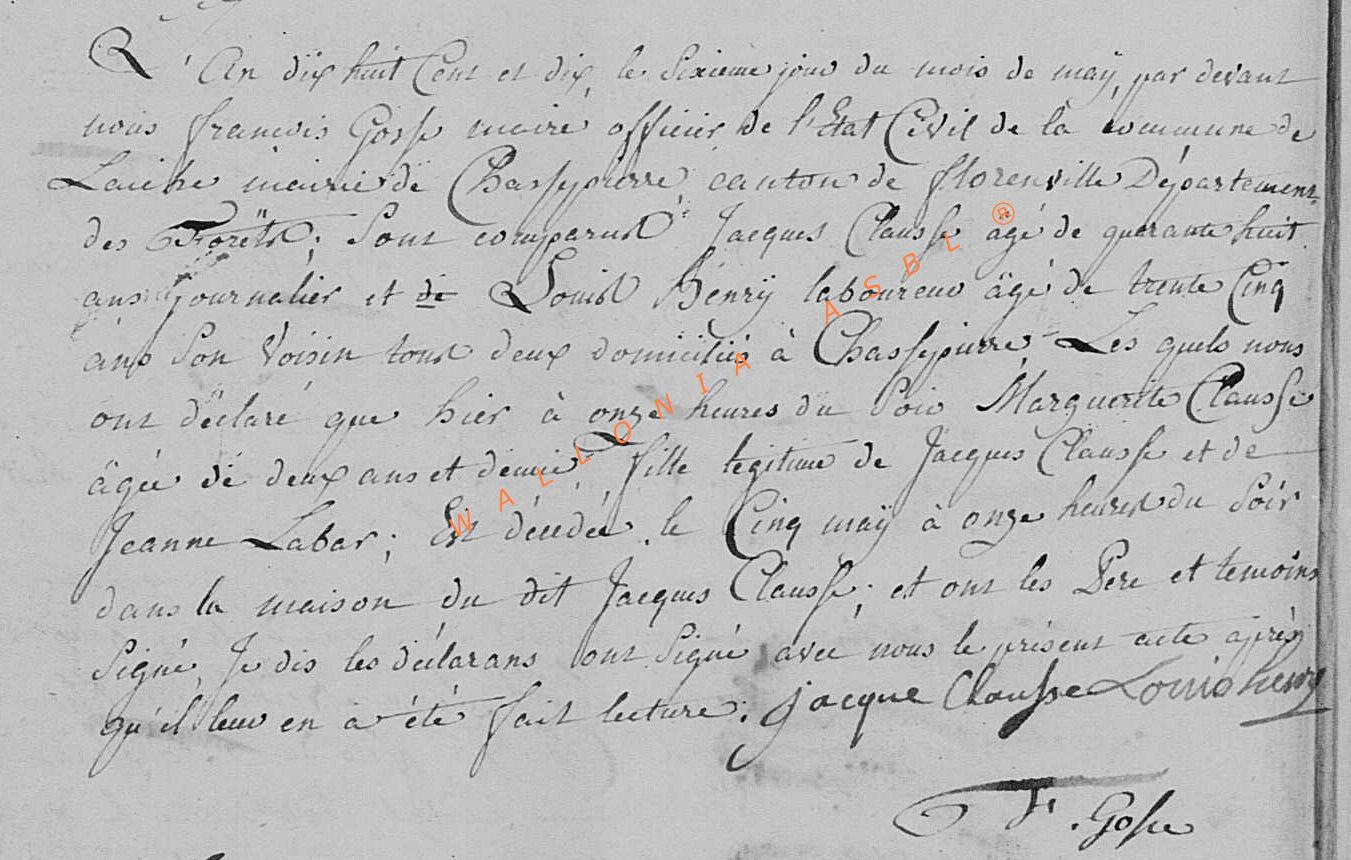 L'An dix huit Cent et dix, le Sixieme jour du mois de maÿ, par devant
nous francois Gosse maire officier de l'Etat Civil de la commune de
Laiche mairie de Chassepierre canton de florenville Département
des Forêts; Sont comparus Jacques Clausse âgé de quarante huit
ans journalier et de Louis Henrÿ laboureur âgé de trente Cinq
ans Son Voisin tous deux domiciliés à Chassepierre, Les quels nous
ont déclaré que hier à onze heures du Soir Marguerite Clausse
âgée de deux ans et demie fille legitime de Jacques Clausse et de
Jeanne Labar; Est décédée le Cinq maÿ à onze heures du Soir
dans la maison du dit Jacques Clausse; et ont les Pere et temoins
Signé, Je dis les déclarans ont Signé avec nous le présent acte après
qu'il leur en a été fait lecture. jacque Clausse Louis henry
F. Gosse
WALLONIA ASBL ®